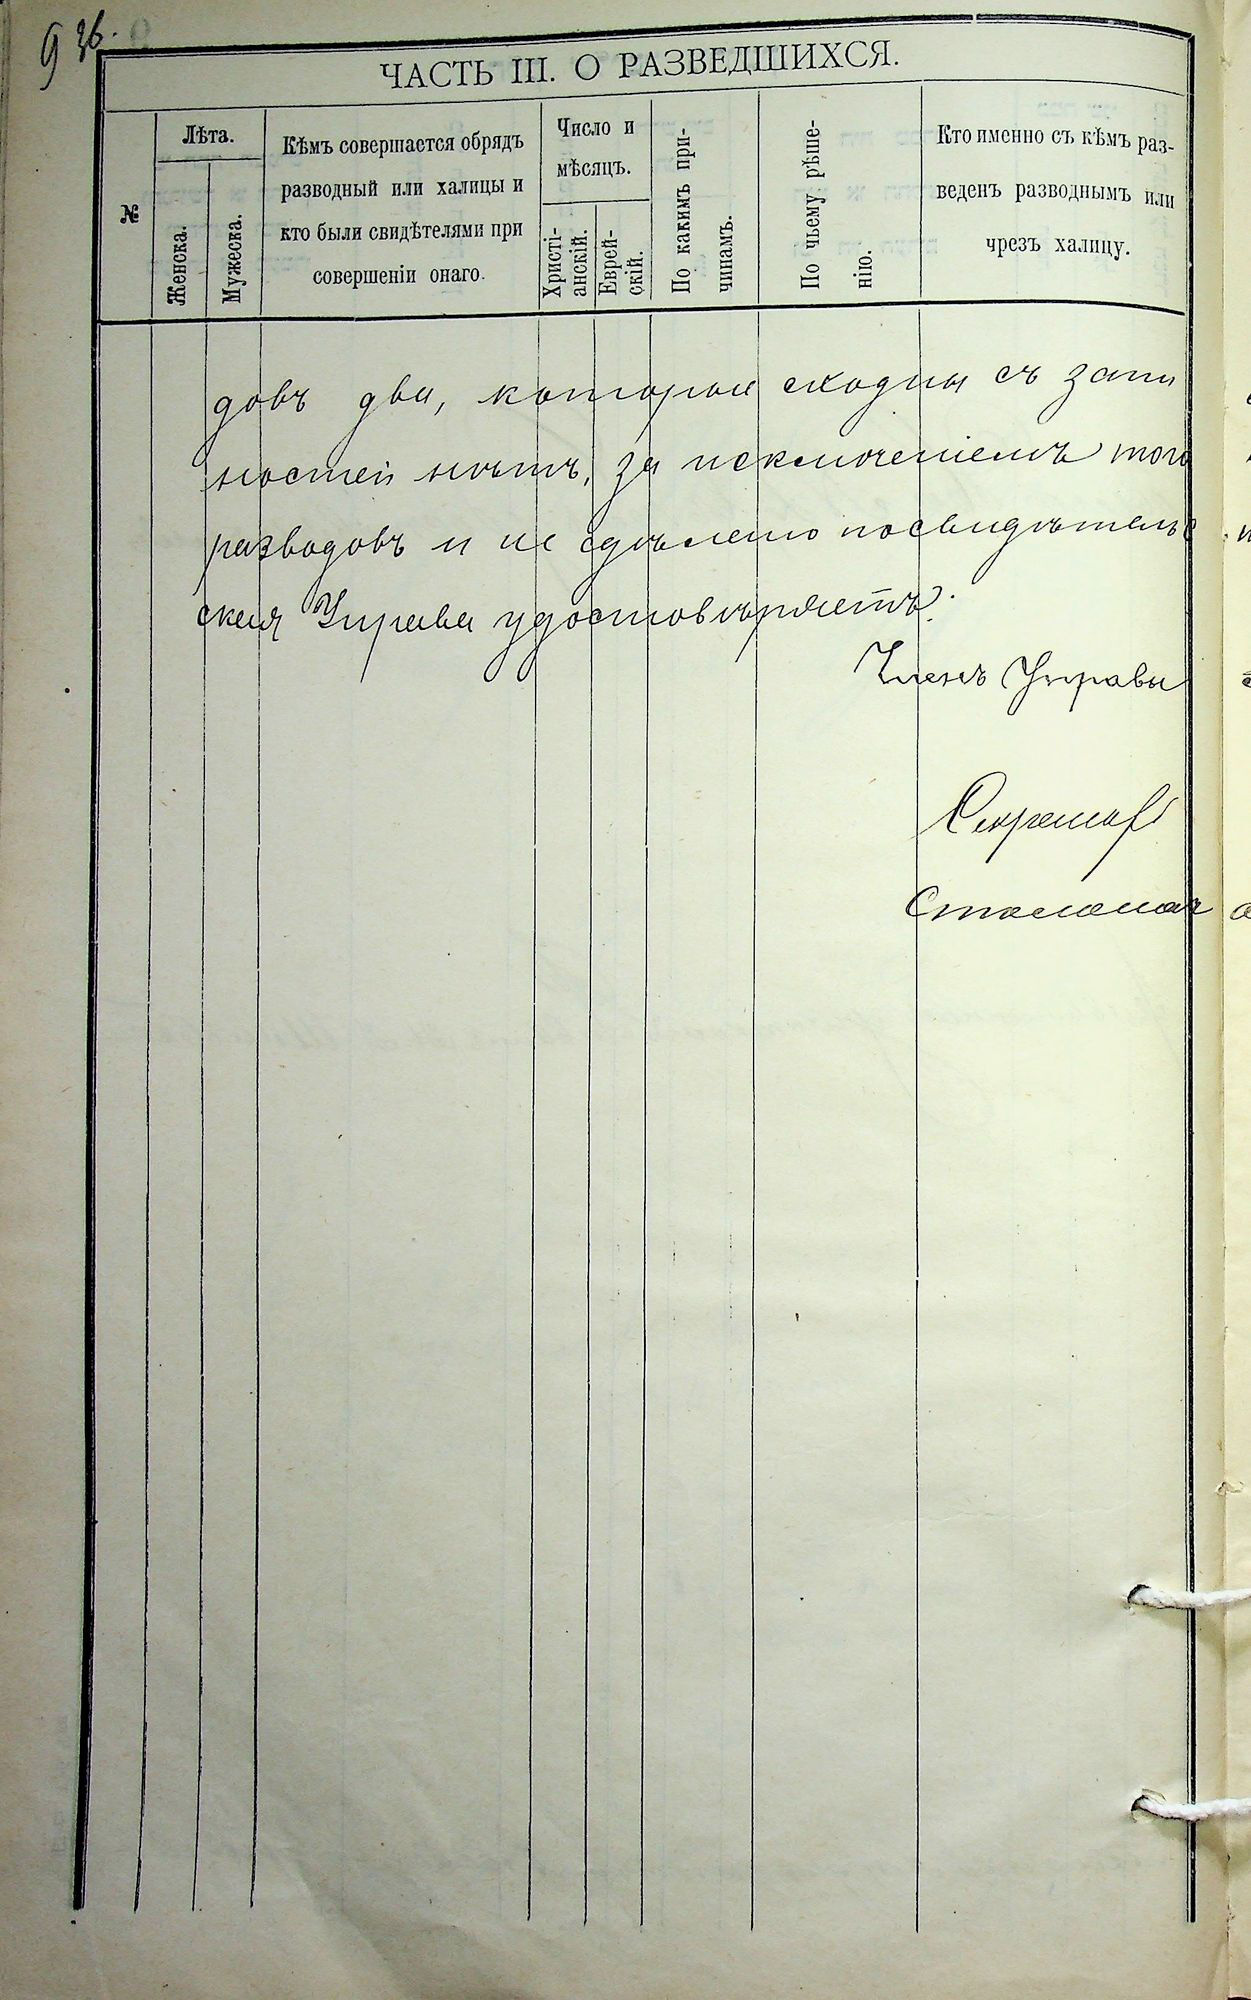 9 об.
ЧАСТЬ III. О РАЗВЕДШИХСЯ.
№
Лѣта.
Женска.
Мужеска.
Кѣмъ совершается обрядъ
разводный или халицы и
кто были свидѣтелями при
совершеніи онаго.
Число и
мѣсяцъ.
Христі-
анскій.
Еврей-
скій.
По какимъ при-
чинамъ.
По чьему рѣше-
нію.
Кто именно съ кѣмъ раз-
веденъ разводнымъ или
чрезъ халицу.
довъ два, которые сходны съ запи
ностей нѣтъ, за исключеніемъ того
разводовъ и не сдѣлано посвидѣтельс
ская Управа удостовѣряетъ.
Членъ Управы
Секретар
Столонач